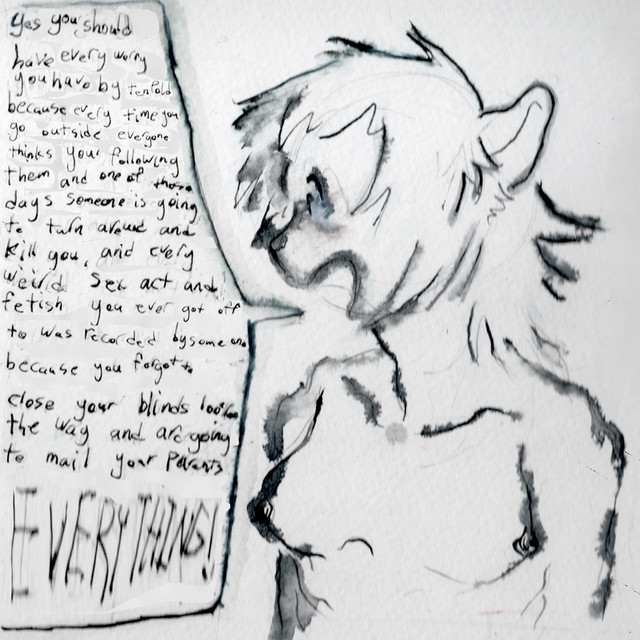 Yes you should
have every worry
you have by tenfold
because every time you
go outside everyone
thinks your following
them and one of these
days someone is going
to turn around and
kill you, and every
weird Sex act and
fetish you ever got off
to was recorded by someone
because you forgot to
close your blinds
the way and are going
to mail your Parents
EVERYTHING!